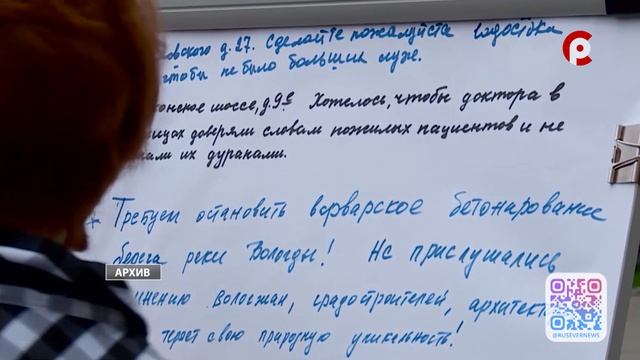 д. 27. Сделайте пожалуйста
чтобы не было больших луж.
шоссе, д.9 Хотелось, чтобы доктора в
доверяли словам пожилых пациентов и не
их дураками.
Требуем остановить варварское бетонирование
реки Вологды! Не прислушались
АРХИВ
вологжан, градостроителей,
свою природную уникальность!
@RUSEVERNEWS